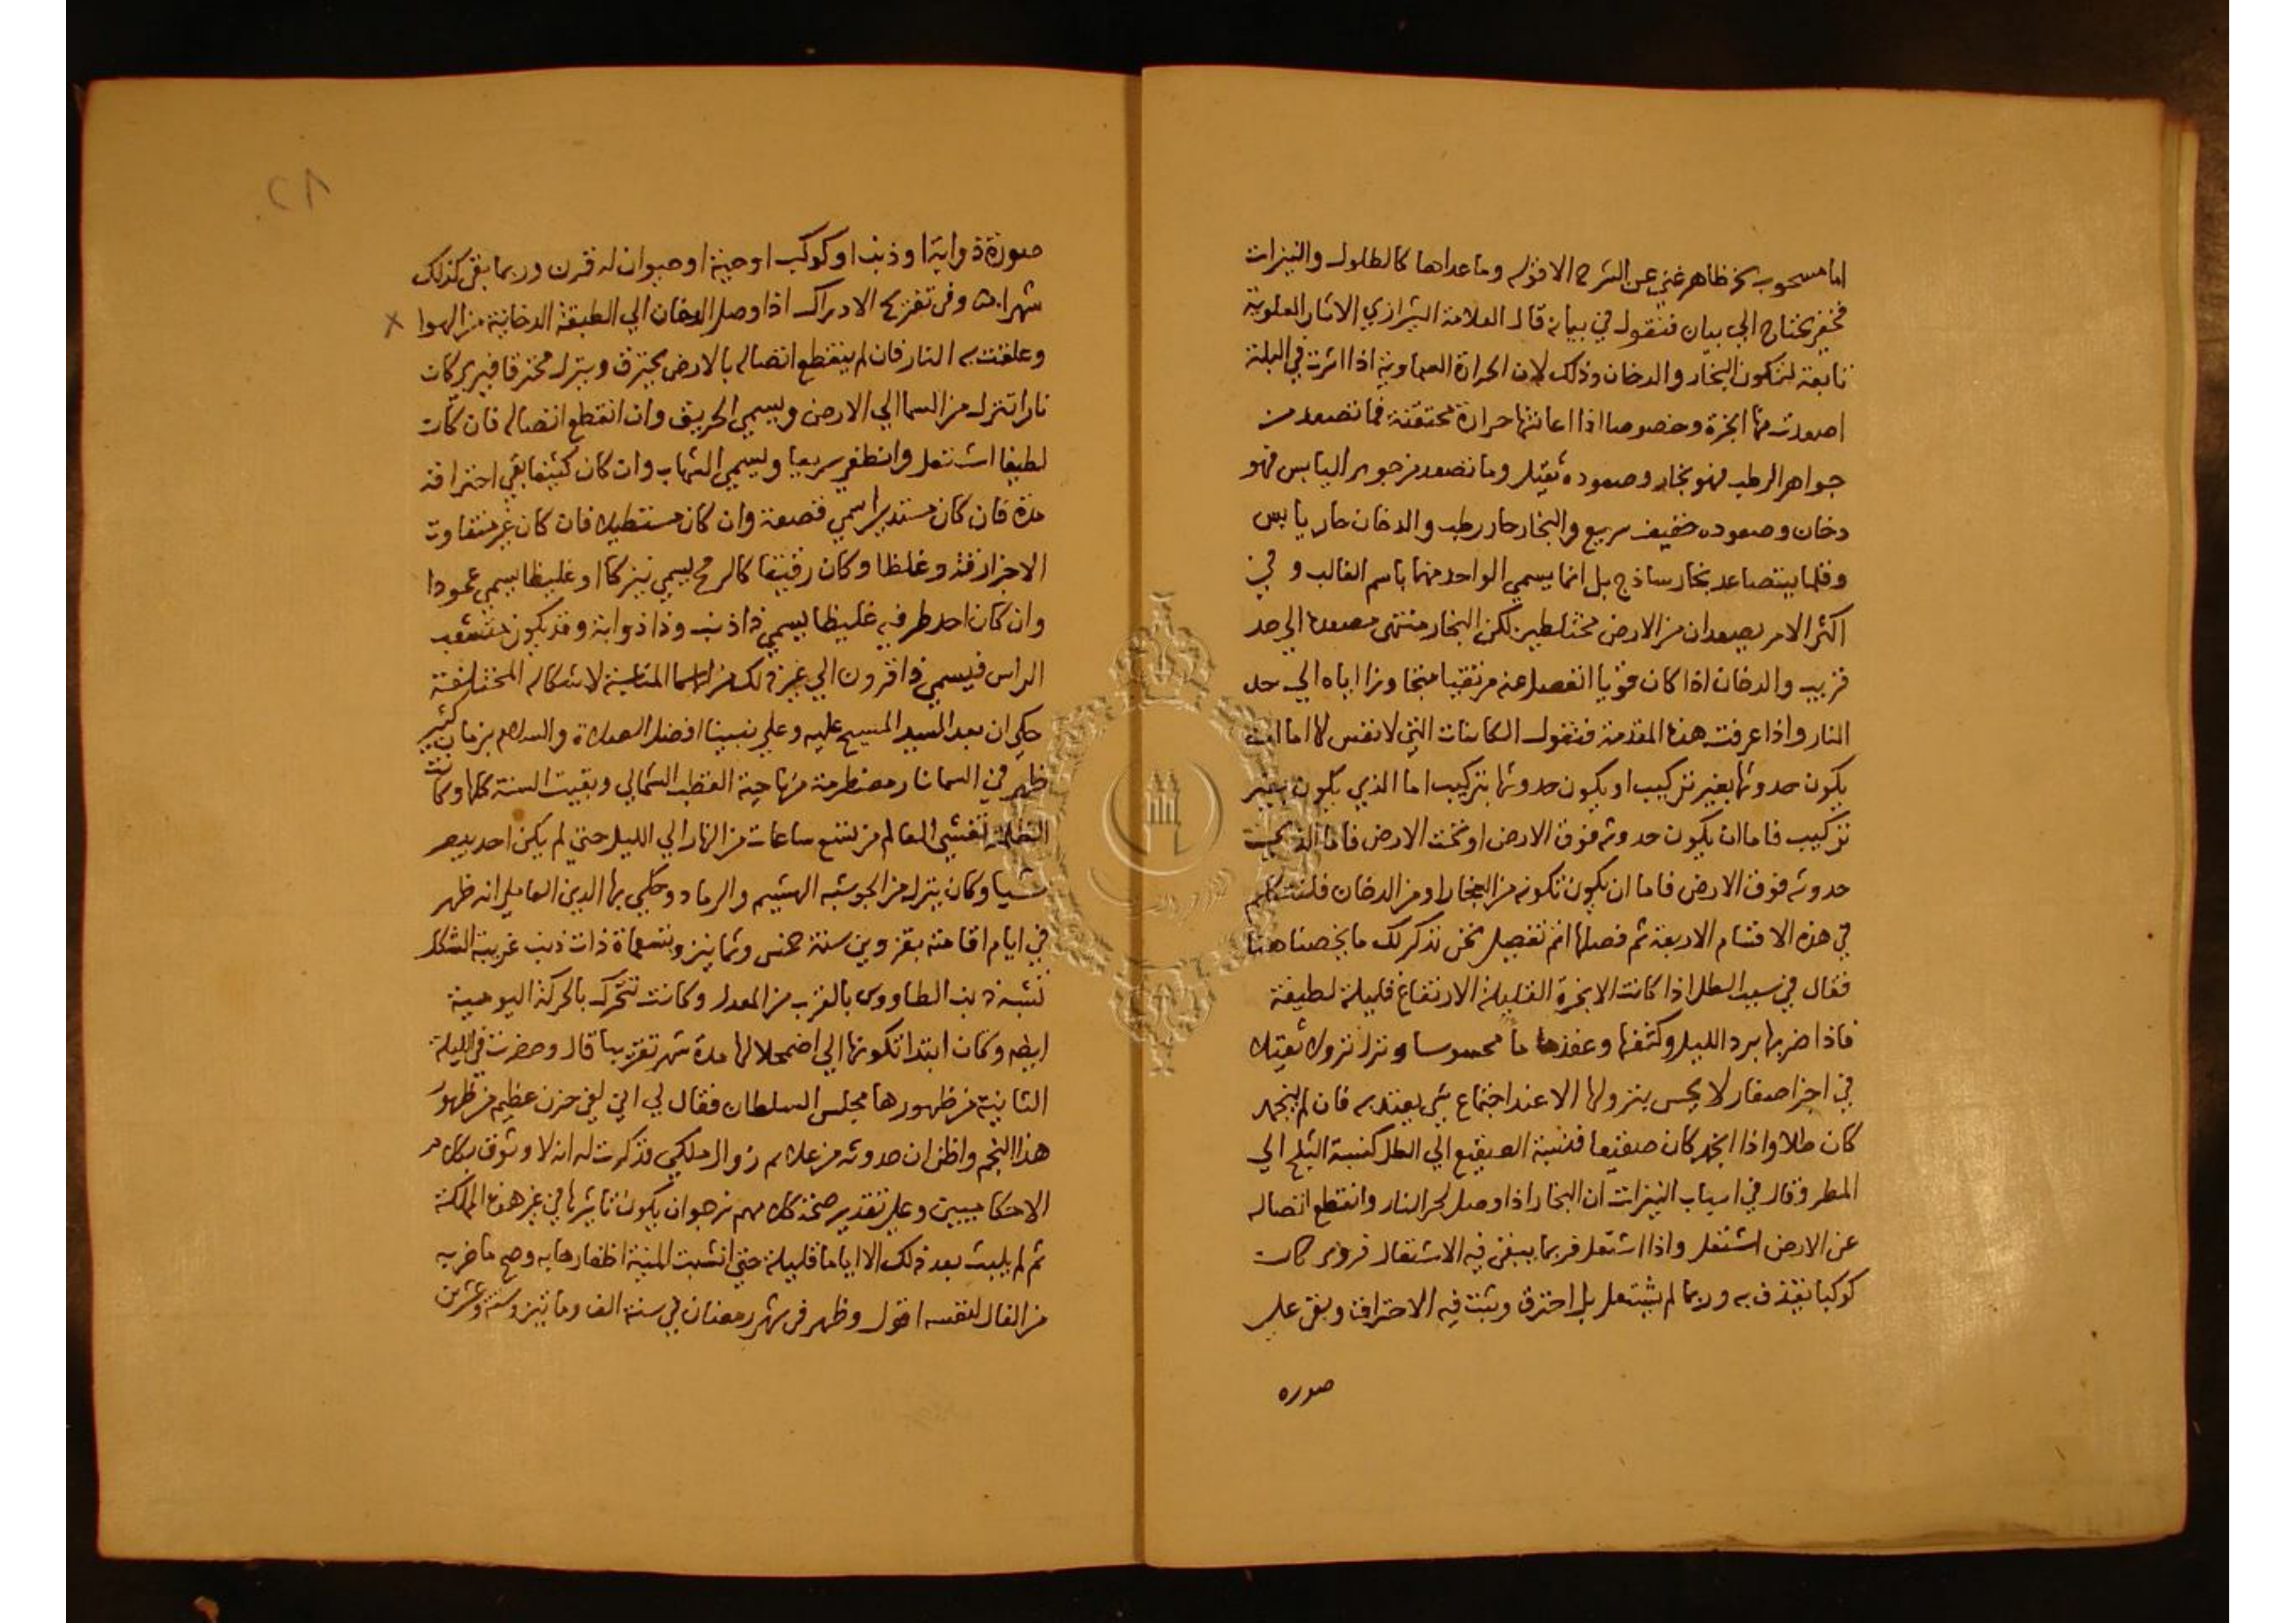 اما مسحوب بخر ظاهر غني عن الشرح الا قوله وما عداها كالطلول والنيزات
فخفي يحتاج الي بيان فنقول في بيانه قال العلامة الشيرازي الاثار العلوية
تابعة لتكون البخار والدخان وذلك لان الحرارة السماوية اذا اثرت في البلة
اصعدت منها ابخرة وخصوصا اذا اعانتها حرارة محتقنة فما تصعد من
جواهر الرطب فهو بخار وصعوده ثقيل وما تصعد من جوهر اليابس فهو
دخان وصعوده خفيف سريع والبخار حار رطب والدخان حار يابس
وقلما يتصاعد بخار ساذج بل انما يسمي الواحد منهما باسم الغالب وفي
اكثر الامر يصعدان من الارض مختلطين لكن البخار منتهي صعوده الي حد
قريب والدخان اذا كان قويا انفصل عنه مرتقيا متجاوزا اياه الي حد
النار واذا عرفت هذه المقدمة فنقول الكاينات التي لا نفس لها اما ان
يكون حدوثها بغير تركيب او يكون حدوثها بتركيب اما الذي يكون بغير
تركيب فاما ان يكون حدوثه فوق الارض او تحت الارض فاما الذي
حدوثه فوق الارض فاما ان يكون تكونه من البخار او من الدخان فلنتكلم
في هذه الاقسام الاربعة ثم فصلها اتم تفصيل نحن نذكر لك ما يخصنا هنا
فقال في سبب الطل اذا كانت الابخرة القليلة الارتفاع قليلة لطيفة
فاذا ضربها برد الليل وكثفها وعقدها ما محسوسا ونزل نزولا ثقيلا
في اجزا صغار لا يحس بنزولها الا عند اجتماع شي يعتد به فان لم ينجمد
كان طلا واذا انجمد كان صقيعا فنسبة الصقيع الي الطل كنسبة الثلج الي
المطر وقال في اسباب النيزات ان البخار اذا وصل لحر النار وانقطع اتصاله
عن الارض اشتعل واذا اشتعل فربما يبقي فيه الاشتعال فروي كان
كوكبا يقذف به وربما لم يشتعل بل احترق وثبت فيه الاحتراق وبقي علي
صوره
٢٨
صورة ذوابة او ذنب او كوكب او حية او حيوان له قرن وربما بقي كذلك
شهرا وفي تفريح الادراك اذا وصل الدخان الي الطبقة الدخانية من الهوا
وعلقت به النار فان لم ينقطع اتصاله بالارض يحترق وينزل محترقا فيري كان
نارا تنزل من السما الي الارض ويسمي الحريق وان انقطع اتصاله فان كان
لطيفا اشتعل وانطفي سريعا ويسمي الشهاب وان كان كثيفا بقي احتراقه
مدة فان كان مستديرا سمي قصعة وان كان مستطيلا فان كان غير متفاوت
الاجزا رقة وغلظا وكان رقيقا كالرمح يسمي نيزكا او غليظا يسمي عمودا
وان كان احد طرفيه غليظا يسمي ذا ذنب وذا ذوابة وقد يكون متشعب
الراس فيسمي ذا قرون الي غير ذلك من الاسما المناسبة لاشكاله المختلفة
حكي ان بعد السيد المسيح عليه وعلي نبينا افضل الصلاة والسلام بزمان كثير
ظهر في السما نار مضطرمة من ناحية القطب الشمالي وبقيت السنة كلها وكانت
الظلمة تغشي العالم من تسع ساعات من النهار الي الليل حتي لم يكن احد يبصر
شيا وكان ينزل من الجو شبه الهشيم والرماد وحكي بها الدين العاملي انه ظهر
في ايام اقامته بقزوين سنة خمس وثمانين وتسعماة ذات ذنب غريبة الشكل
تشبه ذنب الطاووس بالقرب من المعدل وكانت تتحرك بالحركة اليومية
ايضه وكان ابتدا تكونها الي اضمحلالها مدة شهر تقريبا قال وحضرت في الليلة
الثانية من ظهورها مجلس السلطان فقال لي اني لفي حزن عظيم من ظهور
هذا النجم واظن ان حدوثه من علام زوال ملكي فذكرت له انه لا وثوق بكلام
الاحكاميين وعلي تقدير صحة كلامهم نرجو ان يكون تاثيرها في غير هذه المملكة
ثم لم يلبث بعد ذلك الا اياما قليلة حتي انشبت المنية اظفارها به وصح ما ضربه
من الفال لنفسه اقول وظهر في شهر رمضان في سنة الف وماتين وستة وعشرين